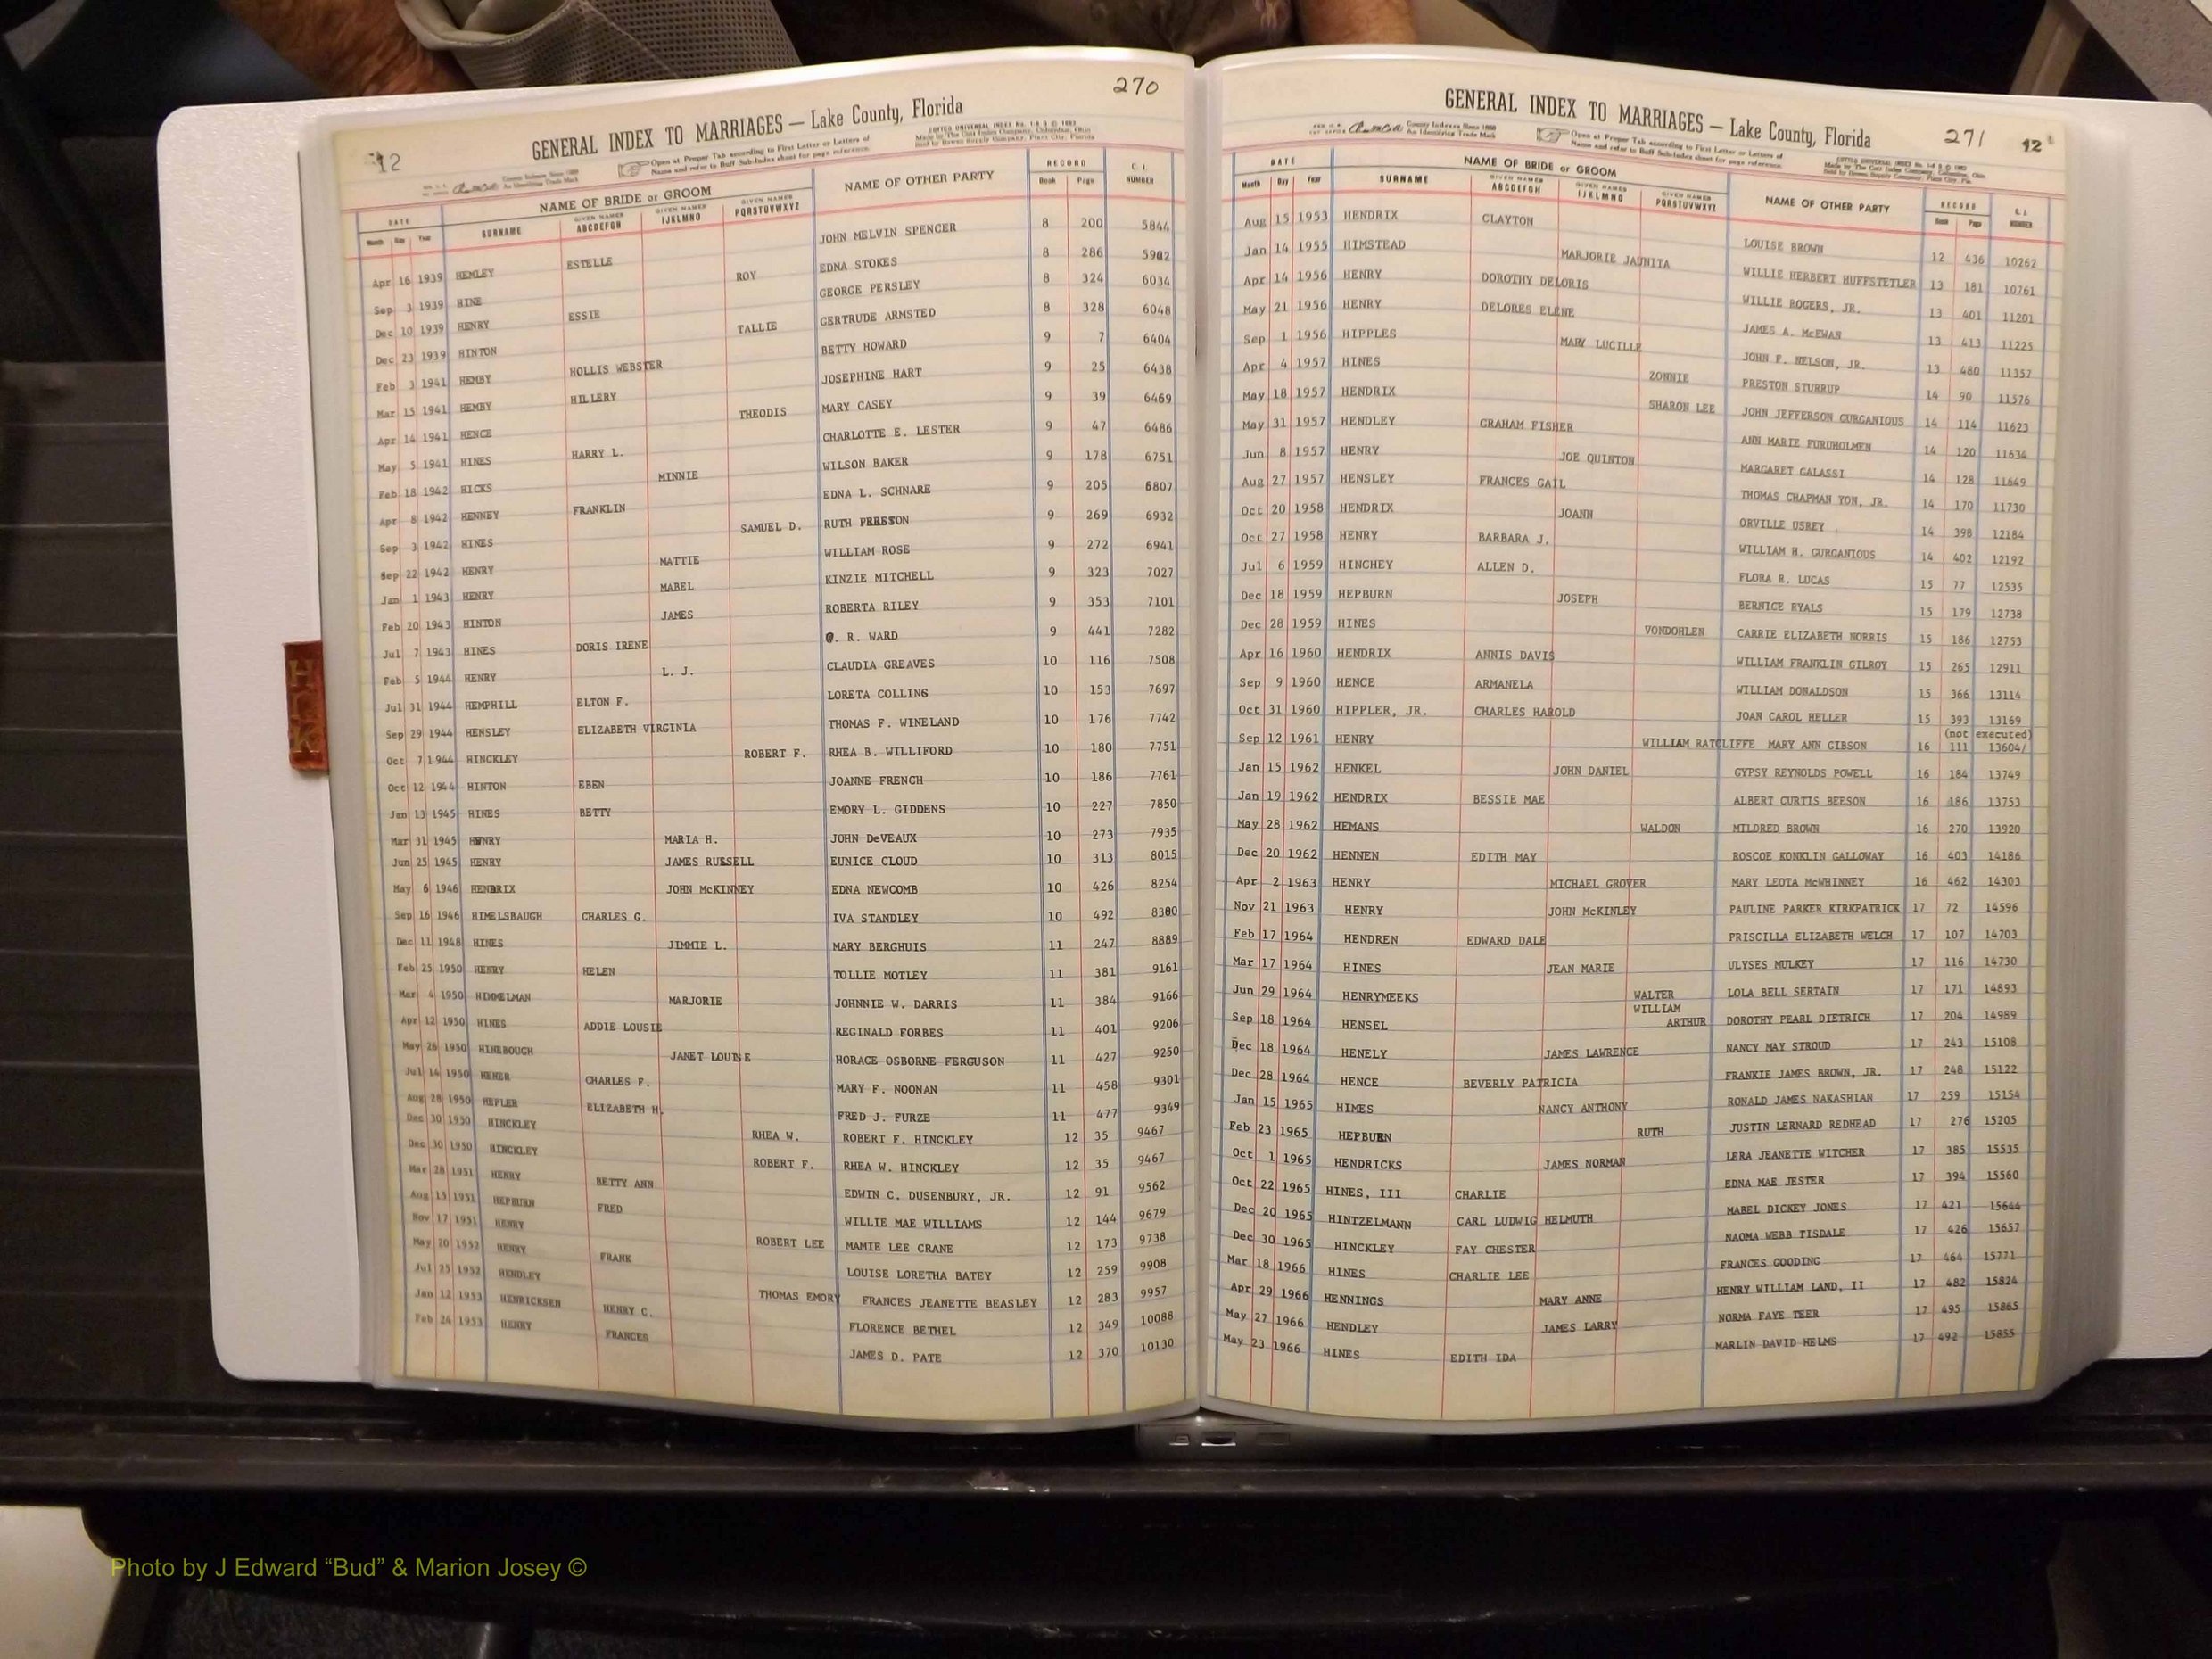 270
12
GENERAL INDEX TO MARRIAGES — Lake County, Florida
Open at Proper Tab according to First Letter or Letters of
Name and refer to Buff Sub-Index sheet for page reference.
DATE NAME OF BRIDE or GROOM NAME OF OTHER PARTY RECORD C. I. NUMBER
Month Day Year SURNAME GIVEN NAMES ABCDEFGH GIVEN NAMES IJKLMNO GIVEN NAMES PQRSTUVWXYZ Book Page
Apr 16 1939 HENLEY ESTELLE JOHN MELVIN SPENCER 8 200 5844
Sep 3 1939 HINE ROY EDNA STOKES 8 286 5902
Dec 10 1939 HENRY ESSIE GEORGE PERSLEY 8 324 6034
Dec 23 1939 HINTON TALLIE GERTRUDE ARMSTED 8 328 6048
Feb 3 1941 HEMBY HOLLIS WEBSTER BETTY HOWARD 9 7 6404
Mar 15 1941 HEMBY HILLERY JOSEPHINE HART 9 25 6438
Apr 14 1941 HENCE THEODIS MARY CASEY 9 39 6469
May 5 1941 HINES HARRY L. CHARLOTTE E. LESTER 9 47 6486
Feb 18 1942 HICKS MINNIE WILSON BAKER 9 178 6751
Apr 8 1942 HENNEY FRANKLIN EDNA L. SCHNARE 9 205 6807
Sep 3 1942 HINES SAMUEL D. RUTH PRESTON 9 269 6932
Sep 22 1942 HENRY MATTIE WILLIAM ROSE 9 272 6941
Jan 1 1943 HENRY MABEL KINZIE MITCHELL 9 323 7027
Feb 20 1943 HINTON JAMES ROBERTA RILEY 9 353 7101
Jul 7 1943 HINES DORIS IRENE R. WARD 9 441 7282
Feb 5 1944 HENRY L. J. CLAUDIA GREAVES 10 116 7508
Jul 31 1944 HEMPHILL ELTON F. LORETA COLLINS 10 153 7697
Sep 29 1944 HENSLEY ELIZABETH VIRGINIA THOMAS F. WINELAND 10 176 7742
Oct 7 1944 HINCKLEY ROBERT F. RHEA B. WILLIFORD 10 180 7751
Oct 12 1944 HINTON EBEN JOANNE FRENCH 10 186 7761
Jan 13 1945 HINES BETTY EMORY L. GIDDENS 10 227 7850
Mar 31 1945 HENRY MARIA H. JOHN DeVEAUX 10 273 7935
Jun 25 1945 HENRY JAMES RUSSELL EUNICE CLOUD 10 313 8015
May 6 1946 HENDRIX JOHN McKINNEY EDNA NEWCOMB 10 426 8254
Sep 16 1946 HIMELSBAUGH CHARLES G. IVA STANDLEY 10 492 8380
Dec 11 1948 HINES JIMMIE L. MARY BERGHUIS 11 247 8889
Feb 25 1950 HENRY HELEN TOLLIE MOTLEY 11 381 9161
Mar 4 1950 HIMMELMAN MARJORIE JOHNNIE W. DARRIS 11 384 9166
Apr 12 1950 HINES ADDIE LOUSIE REGINALD FORBES 11 401 9206
May 26 1950 HINEBOUGH JANET LOUISE HORACE OSBORNE FERGUSON 11 427 9250
Jul 14 1950 HENER CHARLES F. MARY F. NOONAN 11 458 9301
Aug 28 1950 HEPLER ELIZABETH H. FRED J. FURZE 11 477 9349
Dec 30 1950 HINCKLEY RHEA W. ROBERT F. HINCKLEY 12 35 9467
Dec 30 1950 HINCKLEY ROBERT F. RHEA W. HINCKLEY 12 35 9467
Mar 28 1951 HENRY BETTY ANN EDWIN C. DUSENBURY, JR. 12 91 9562
Aug 15 1951 HEPBURN FRED WILLIE MAE WILLIAMS 12 144 9679
Nov 17 1951 HENRY ROBERT LEE MAMIE LEE CRANE 12 173 9738
May 20 1952 HENRY FRANK LOUISE LORETHA BATEY 12 259 9908
Jul 25 1952 HENDLEY THOMAS EMORY FRANCES JEANETTE BEASLEY 12 283 9957
Jan 12 1953 HENRICKSEN HENRY C. FLORENCE BETHEL 12 349 10088
Feb 24 1953 HENRY FRANCES JAMES D. PATE 12 370 10130
GENERAL INDEX TO MARRIAGES — Lake County, Florida
271
12
Open at Proper Tab according to First Letter or Letters of
Name and refer to Buff Sub-Index sheet for page reference.
DATE NAME OF BRIDE or GROOM NAME OF OTHER PARTY RECORD C. I. NUMBER
Month Day Year SURNAME GIVEN NAMES ABCDEFGH GIVEN NAMES IJKLMNO GIVEN NAMES PQRSTUVWXYZ Book Page
Aug 15 1953 HENDRIX CLAYTON LOUISE BROWN 12 436 10262
Jan 14 1955 HIMSTEAD MARJORIE JAUNITA WILLIE HERBERT HUFFSTETLER 13 181 10761
Apr 14 1956 HENRY DOROTHY DELORIS WILLIE ROGERS, JR. 13 401 11201
May 21 1956 HENRY DELORES ELENE JAMES A. McEWAN 13 413 11225
Sep 1 1956 HIPPLES MARY LUCILLE JOHN F. NELSON, JR. 13 480 11357
Apr 4 1957 HINES ZONNIE PRESTON STURRUP 14 90 11576
May 18 1957 HENDRIX SHARON LEE JOHN JEFFERSON GURGANIOUS 14 114 11623
May 31 1957 HENDLEY GRAHAM FISHER ANN MARIE FURUHOLMEN 14 120 11634
Jun 8 1957 HENRY JOE QUINTON MARGARET GALASSI 14 128 11649
Aug 27 1957 HENSLEY FRANCES GAIL THOMAS CHAPMAN YON, JR. 14 170 11730
Oct 20 1958 HENDRIX JOANN ORVILLE USREY 14 398 12184
Oct 27 1958 HENRY BARBARA J. WILLIAM H. GURGANIOUS 14 402 12192
Jul 6 1959 HINCHEY ALLEN D. FLORA R. LUCAS 15 77 12535
Dec 18 1959 HEPBURN JOSEPH BERNICE RYALS 15 179 12738
Dec 28 1959 HINES VONDOHLEN CARRIE ELIZABETH NORRIS 15 186 12753
Apr 16 1960 HENDRIX ANNIS DAVIS WILLIAM FRANKLIN GILROY 15 265 12911
Sep 9 1960 HENCE ARMANELA WILLIAM DONALDSON 15 366 13114
Oct 31 1960 HIPPLER, JR. CHARLES HAROLD JOAN CAROL HELLER 15 393 13169
(not executed)
Sep 12 1961 HENRY WILLIAM RATCLIFFE MARY ANN GIBSON 16 111 13604/
Jan 15 1962 HENKEL JOHN DANIEL GYPSY REYNOLDS POWELL 16 184 13749
Jan 19 1962 HENDRIX BESSIE MAE ALBERT CURTIS BEESON 16 186 13753
May 28 1962 HEMANS WALDON MILDRED BROWN 16 270 13920
Dec 20 1962 HENNEN EDITH MAY ROSCOE KONKLIN GALLOWAY 16 403 14186
Apr 2 1963 HENRY MICHAEL GROVER MARY LEOTA McWHINNEY 16 462 14303
Nov 21 1963 HENRY JOHN McKINLEY PAULINE PARKER KIRKPATRICK 17 72 14596
Feb 17 1964 HENDREN EDWARD DALE PRISCILLA ELIZABETH WELCH 17 107 14703
Mar 17 1964 HINES JEAN MARIE ULYSES MULKEY 17 116 14730
Jun 29 1964 HENRYMEEKS WALTER LOLA BELL SERTAIN 17 171 14893
Sep 18 1964 HENSEL WILLIAM ARTHUR DOROTHY PEARL DIETRICH 17 204 14989
Dec 18 1964 HENELY JAMES LAWRENCE NANCY MAY STROUD 17 243 15108
Dec 28 1964 HENCE BEVERLY PATRICIA FRANKIE JAMES BROWN, JR. 17 248 15122
Jan 15 1965 HIMES NANCY ANTHONY RONALD JAMES NAKASHIAN 17 259 15154
Feb 23 1965 HEPBURN RUTH JUSTIN LERNARD REDHEAD 17 276 15205
Oct 1 1965 HENDRICKS JAMES NORMAN LERA JEANETTE WITCHER 17 385 15535
Oct 22 1965 HINES, III CHARLIE EDNA MAE JESTER 17 394 15560
Dec 20 1965 HINTZELMANN CARL LUDWIG HELMUTH MABEL DICKEY JONES 17 421 15644
Dec 30 1965 HINCKLEY FAY CHESTER NAOMA WEBB TISDALE 17 426 15657
Mar 18 1966 HINES CHARLIE LEE FRANCES GOODING 17 464 15771
Apr 29 1966 HENNINGS MARY ANNE HENRY WILLIAM LAND, II 17 482 15824
May 27 1966 HENDLEY JAMES LARRY NORMA FAYE TEER 17 495 15865
May 23 1966 HINES EDITH IDA MARLIN DAVID HELMS 17 492 15855
Photo by J Edward “Bud” & Marion Josey ©